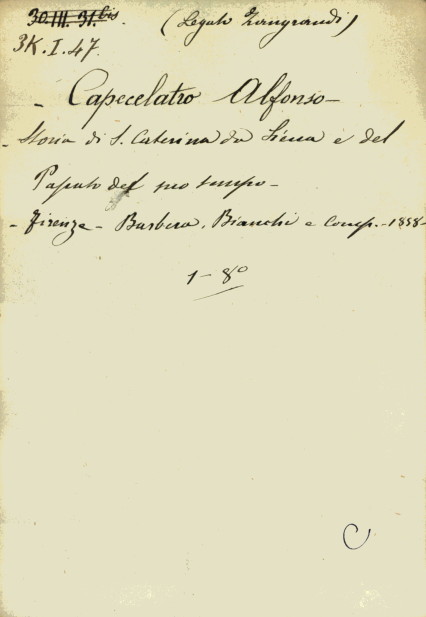 30.III.31.bis. (Legato Zangrandi)
3K.I.47.
- Capecelatro Alfonso -
- Storia di S. Caterina da Siena e del
Papato del suo tempo -
- Firenze - Barbera, Bianchi e Comp. - 1858 -
1 - 8º
C